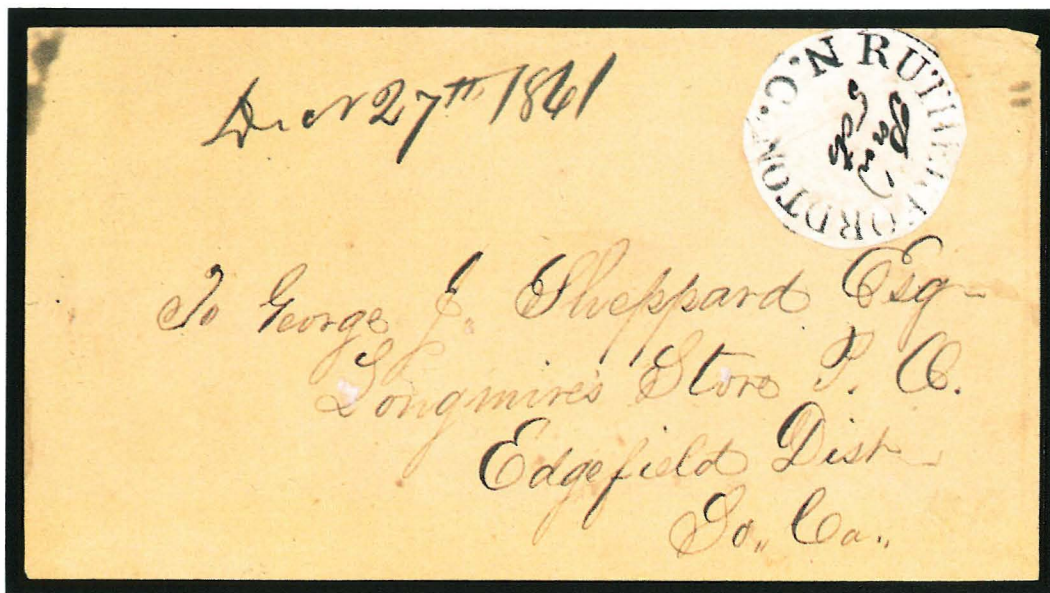 Decr 27th 1861
RUTHERFORDTON. N.C.
To George J. Sheppard Esq
Longmires Store P. O.
Edgefield Dist
So,, Ca,,